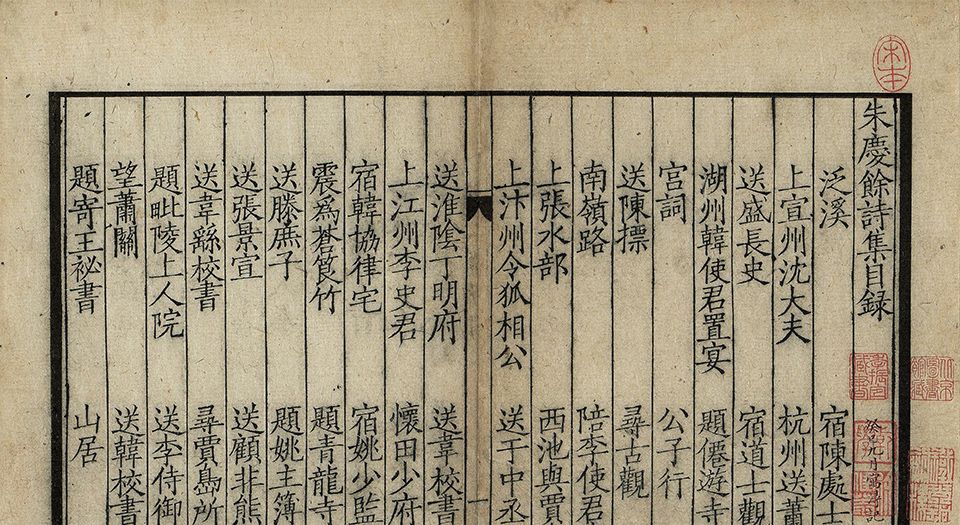 宋本
朱慶餘詩集目録
泛溪 宿陳處士
上宣州沈大夫 杭州送蕭
送盛長史 宿道士觀
湖州韓使君置宴 題僊遊寺
宮詞 公子行
送陳摽 尋古觀
南嶺路 陪李使君
上張水部 西池與賈
上汴州令狐相公 送于中丞
送淮陰丁明府 送韋校書
上江州李史君 懷田少府
宿韓協律宅 宿姚少監
震為蒼筤竹 題青龍寺
送滕庶子 題姚主簿
送張景宣 送顧非熊
送韋繇校書 尋賈島所
題毗陵上人院 送李侍御
望蕭關 送韓校書
題寄王祕書 山居